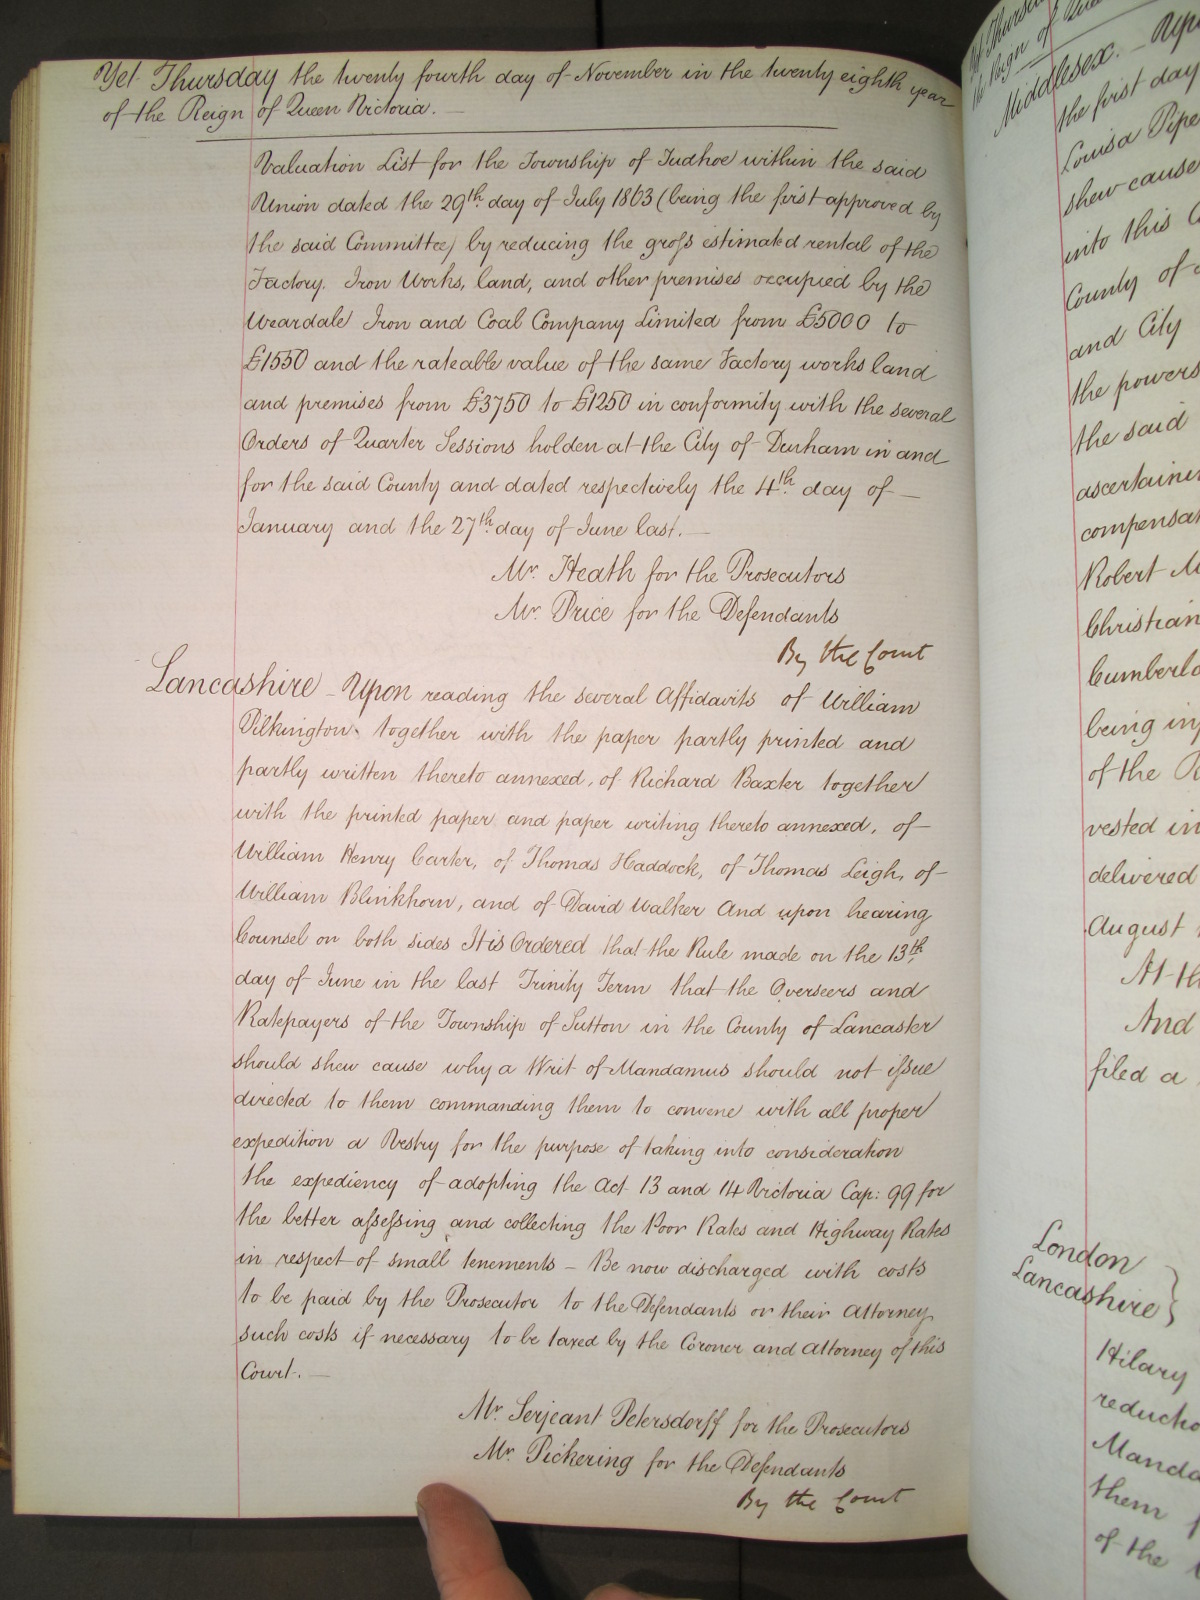 Yet Thursday the twenty fourth day of November in the twenty eighth year
of the Reign of Queen Victoria.
Valuation List for the Township of Tudhoe within the said
Union dated the 29th. day of July 1863 (being the first approved by
the said Committee) by reducing the gross estimated rental of the
Factory. Iron Works, land, and other premises occupied by the
Weardale Iron and Coal Company Limited from £5000 to
£1550 and the rateable value of the same Factory works land
and premises from £3750 to £1250 in conformity with the several
Orders of Quarter Sessions holden at the City of Durham in and
for the said County and dated respectively the 4th. day of
January and the 27th. day of June last.
Mr. Heath for the Prosecutors
Mr. Price for the Defendants
By the Court
Lancashire – Upon reading the several Affidavits of William
Pilkington together with the paper partly printed and
partly written thereto annexed, of Richard Baxter together
with the printed paper and paper writing thereto annexed, of
William Henry Carter, of Thomas Haddock, of Thomas Leigh, of
William Blinkhorn, and of David Walker And upon hearing
Counsel on both sides It is Ordered that the Rule made on the 13th.
day of June in the last Trinity Term that the Overseers and
Ratepayers of the Township of Sutton in the County of Lancaster
should shew cause why a Writ of Mandamus should not issue
directed to them commanding them to convene with all proper
expedition a Vestry for the purpose of taking into consideration
the expediency of adopting the Act 13 and 14 Victoria Cap: 99 for
the better assessing and collecting the Poor Rates and Highway Rates
in respect of small tenements – Be now discharged with costs
to be paid by the Prosecutor to the Defendants or their Attorney
such costs if necessary to be taxed by the Coroner and Attorney of this
Court.
Mr. Serjeant Petersdorff for the Prosecutors
Mr. Pickering for the Defendants
By the Court
Middlesex. –
the first day
Louisa
shew cause
into this
County of
and City
the powers
the said
Robert
being
of the
vested in
delivered
August
And
filed a
London
Lancashire }
Hilary
them
of the